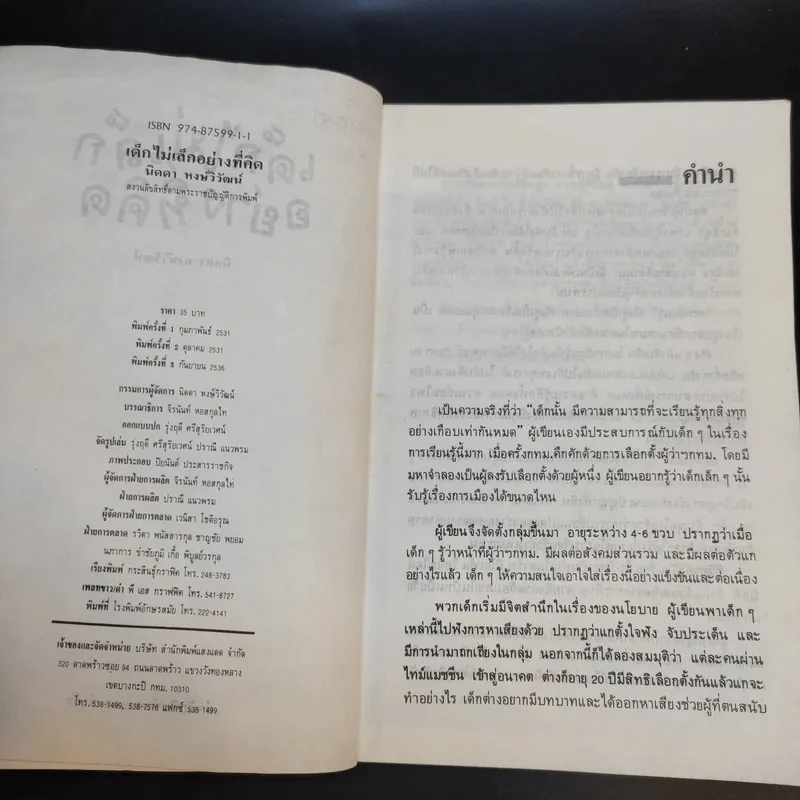 ISBN 974-87599-1-1
เด็กไม่เล็กอย่างที่คิด
นิดดา หงษ์วิวัฒน์
สงวนลิขสิทธิ์ตามพระราชบัญญัติการพิมพ์
ราคา 35 บาท
พิมพ์ครั้งที่ 1 กุมภาพันธ์ 2531
พิมพ์ครั้งที่ 2 ตุลาคม 2531
พิมพ์ครั้งที่ 3 กันยายน 2536
กรรมการผู้จัดการ นิดดา หงษ์วิวัฒน์
บรรณาธิการ จิรนันท์ หอสกุลไท
ออกแบบปก รุ่งฤดี ศรีสุริยเวศน์
จัดรูปเล่ม รุ่งฤดี ศรีสุริยเวศน์ ปราณี แนวพรม
ภาพประกอบ ปิยนันต์ ประสารราชกิจ
ผู้จัดการฝ่ายการผลิต จิรนันท์ หอสกุลไท
ฝ่ายการผลิต ปราณี แนวพรม
ผู้จัดการฝ่ายการตลาด เวนิสา โชติอรุณ
ฝ่ายการตลาด รวิตา พนัสสารกุล ชาญชัย พยอม
นภาการ ขำชัยภูมิ เกื้อ พิบูลย์วรกุล
เรียงพิมพ์ กระสินธุ์กราฟิค โทร. 248-3783
เพลทขาว/ดำ พี เอส กราฟฟิค โทร. 541-8727
พิมพ์ที่ โรงพิมพ์อักษรสมัย โทร. 222-4141
เจ้าของและจัดจำหน่าย บริษัท สำนักพิมพ์แสงแดด จำกัด
320 ลาดพร้าวซอย 94 ถนนลาดพร้าว แขวงวังทองหลาง
เขตบางกะปิ กทม. 10310
โทร. 538-1499, 538-7576 แฟกซ์ 538-1499
คำนำ
เป็นความจริงที่ว่า "เด็กนั้น มีความสามารถที่จะเรียนรู้ทุกสิ่งทุก
อย่างเกือบเท่ากันหมด" ผู้เขียนเองมีประสบการณ์กับเด็ก ๆ ในเรื่อง
การเรียนรู้นี้มาก เมื่อครั้งกทม.คึกคักด้วยการเลือกตั้งผู้ว่าฯกทม. โดยมี
มหาจำลองเป็นผู้ลงรับเลือกตั้งด้วยผู้หนึ่ง ผู้เขียนอยากรู้ว่าเด็กเล็ก ๆ นั้น
รับรู้เรื่องการเมืองได้ขนาดไหน
ผู้เขียนจึงจัดตั้งกลุ่มขึ้นมา อายุระหว่าง 4-6 ขวบ ปรากฏว่าเมื่อ
เด็ก ๆ รู้ว่าหน้าที่ผู้ว่าฯกทม. มีผลต่อสังคมส่วนรวม และมีผลต่อตัวแก
อย่างไรแล้ว เด็ก ๆ ให้ความสนใจเอาใจใส่เรื่องนี้อย่างแข็งขันและต่อเนื่อง
พวกเด็กเริ่มมีจิตสำนึกในเรื่องของนโยบาย ผู้เขียนพาเด็ก ๆ
เหล่านี้ไปฟังการหาเสียงด้วย ปรากฏว่าแกตั้งใจฟัง จับประเด็น และ
มีการนำมาถกเถียงในกลุ่ม นอกจากนี้ก็ได้ลองสมมุติว่า แต่ละคนผ่าน
ไทม์แมชชีน เข้าสู่อนาคต ต่างก็อายุ 20 ปีมีสิทธิเลือกตั้งกันแล้วแกจะ
ทำอย่างไร เด็กต่างอยากมีบทบาทและได้ออกหาเสียงช่วยผู้ที่ตนสนับ